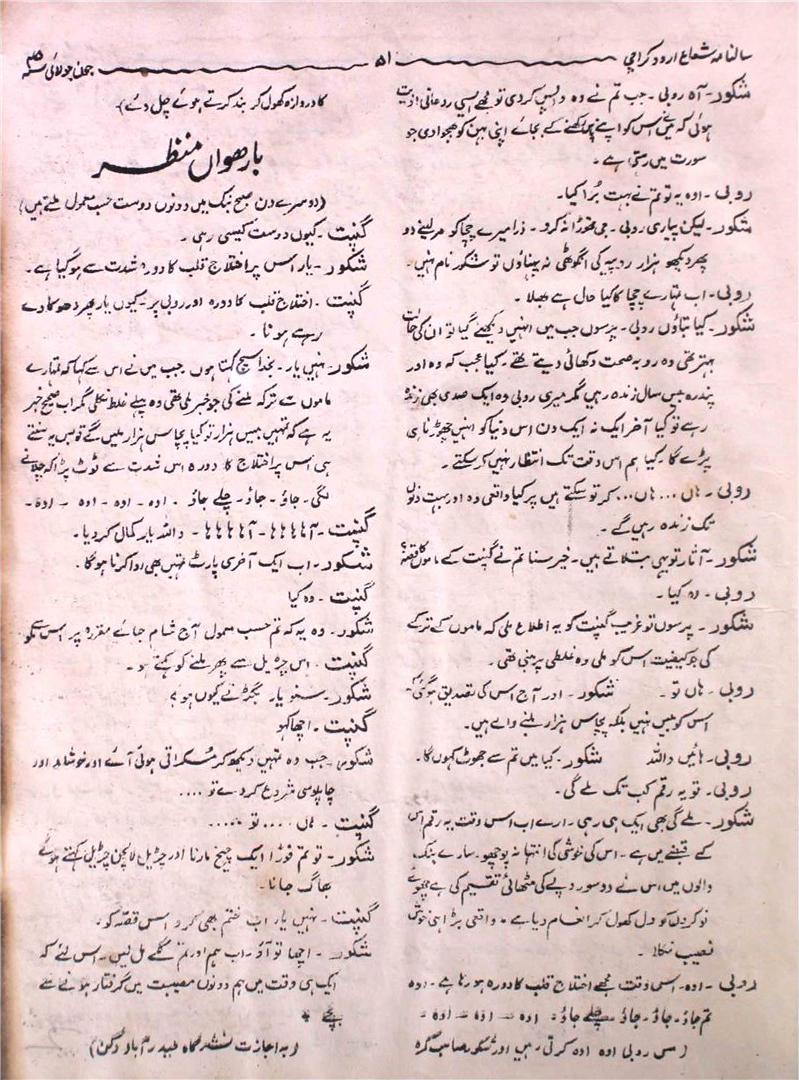 سالنامہ شعاع اردو کراچی ۵۱ جون جولائی سنہ ۴۵
شکور۔ آہ روبی۔ جب تم نے وہ واپس کردی تو مجھے ایسی روحانی اذیت
ہوئی کہ میں اس کو اپنے پاس رکھنے کے بجائے اپنی بہن کو بھجوادی جو
سورت میں رہتا ہے۔
روبی۔ اوہ یہ تو تم نے بہت بُرا کیا۔
شکور۔ لیکن پیاری روبی۔ جی تھوڑا نہ کرو۔ ذرا میرے چچا کو مر لینے دو
پھر دیکھو ہزار روپیہ کی انگوٹھی نہ پہناؤں تو شکور نام نہیں۔
روبی۔ اب تمہارے چچا کا کیا حال ہے بھلا۔
شکور۔ کیا بتاؤں روبی۔ پرسوں جب میں انہیں دیکھنے گیا تو ان کی حالت
بہتر تھی وہ رو بہ صحت دکھائی دیتے تھے۔ کیا عجب کہ وہ اور
پندرہ بیس سال زندہ رہیں مگر میری روبی وہ ایک صدی بھی زندہ
رہے تو کیا آخر ایک نہ ایک دن اس دنیا کو انہیں چھوڑنا ہی
پڑے گا۔ کیا ہم اس وقت تک انتظار نہیں کرسکتے۔
روبی۔ ہاں ... ہاں ... کر تو سکتے ہیں پر کیا واقعی وہ اور بہت دنوں
تک زندہ رہیں گے۔
شکور۔ آثار تو یہی بتلاتے ہیں۔ خیر سنا تم نے گنپت کے ماموں کا قصہ؟
روبی۔ وہ کیا۔
شکور۔ پرسوں تو غریب گنپت کو یہ اطلاع ملی کہ ماموں کے ترکے
کی جو کیفیت اس کو ملی وہ غلطی پر مبنی تھی۔
روبی۔ ہاں تو۔ شکور۔ اور آج اس کی تصدیق ہوگئی کہ
اس کو بیس نہیں بلکہ پچاس ہزار ملنے والے ہیں۔
روبی۔ ہائیں واللہ شکور۔ کیا میں تم سے جھوٹ کہوں گا۔
روبی۔ تو یہ رقم کب تک ملے گی۔
شکور۔ ملے گی بھی ایک ہی رہی۔ ارے اب اس وقت یہ رقم اس
کے قبضے میں ہے۔ اس کی خوشی کی انتہا نہ پوچھو۔ سارے بنک
والوں میں اس نے دو سو روپے کی مٹھائی تقسیم کی ہے چھوٹے
نوکروں کو دل کھول کر انعام دیا ہے۔ واقعی بڑا ہی خوش
نصیب نکلا۔
روبی۔ اوہ۔ اس وقت مجھے اختلاج قلب کا دورہ ہو رہا ہے۔ اوہ
تم جاؤ۔ جاؤ۔ جاؤ چلے جاؤ۔ اوہ — اوہ — اوہ —
(مس روبی اوہ اوہ کرتی رہیں اور شکور صاحب کمرہ
کا دروازہ کھول کر بند کرتے ہوئے چل دئے)
بارھواں منظر
(دوسرے دن صبح بنک میں دونوں دوست حسب معمول ملتے ہیں)
گنپت۔ کیوں دوست کیسی رہی۔
شکور۔ یار اس پر اختلاج قلب کا دورہ شدت سے ہوگیا ہے۔
گنپت۔ اختلاج قلب کا دورہ اور روبی پر۔ کیوں یار پھر دھوکا دے
رہے ہونا۔
شکور۔ نہیں یار۔ بخدا سچ کہتا ہوں جب میں نے اس سے کہا کہ تمہارے
ماموں سے ترکہ ملنے کی جو خبر ملی تھی وہ پہلے غلط نکلی مگر اب صحیح خبر
یہ ہے کہ تمہیں بیس ہزار تو کیا پچاس ہزار ملیں گے تو بس یہ سنتے
ہی اس پر اختلاج کا دورہ اس شدت سے ٹوٹ پڑا کہ چلانے
لگی۔ جاؤ۔ جاؤ۔ چلے جاؤ۔ اوہ۔ اوہ۔ اوہ — اوہ۔
گنپت۔ آہاہاہا۔ آہاہاہاہا۔ واللہ یار کمال کردیا۔
شکور۔ اب ایک آخری پارٹ تمہیں بھی ادا کرنا ہوگا۔
گنپت۔ وہ کیا
شکور۔ وہ یہ کہ تم حسب معمول آج شام جائے مقررہ پر اس سے ملو
گنپت۔ اس چڑیل سے پھر ملنے کو کہتے ہو۔
شکور۔ سنو یار۔ بگڑتے کیوں ہو؟
گنپت۔ اچھا کہو
شکور۔ جب وہ تمہیں دیکھ کر مسکراتی ہوئی آئے اور خوشامد اور
چاپلوسی شروع کردے تو ....
گنپت۔ ہاں .... تو .....
شکور۔ تو تم فوراً ایک چیخ مارنا اور چڑیل لالچن چڑیل کہتے ہوئے
بھاگ جانا۔
گنپت۔ نہیں یار اب ختم بھی کرو اس قصہ کو۔
شکور۔ اچھا تو آؤ۔ اب ہم اور تم گلے مل لیں۔ اس لئے کہ
ایک ہی وقت میں ہم دونوں مصیبت میں گرفتار ہونے سے
بچے *
(بہ اجازت نشر گاہ حیدرآباد دکن)